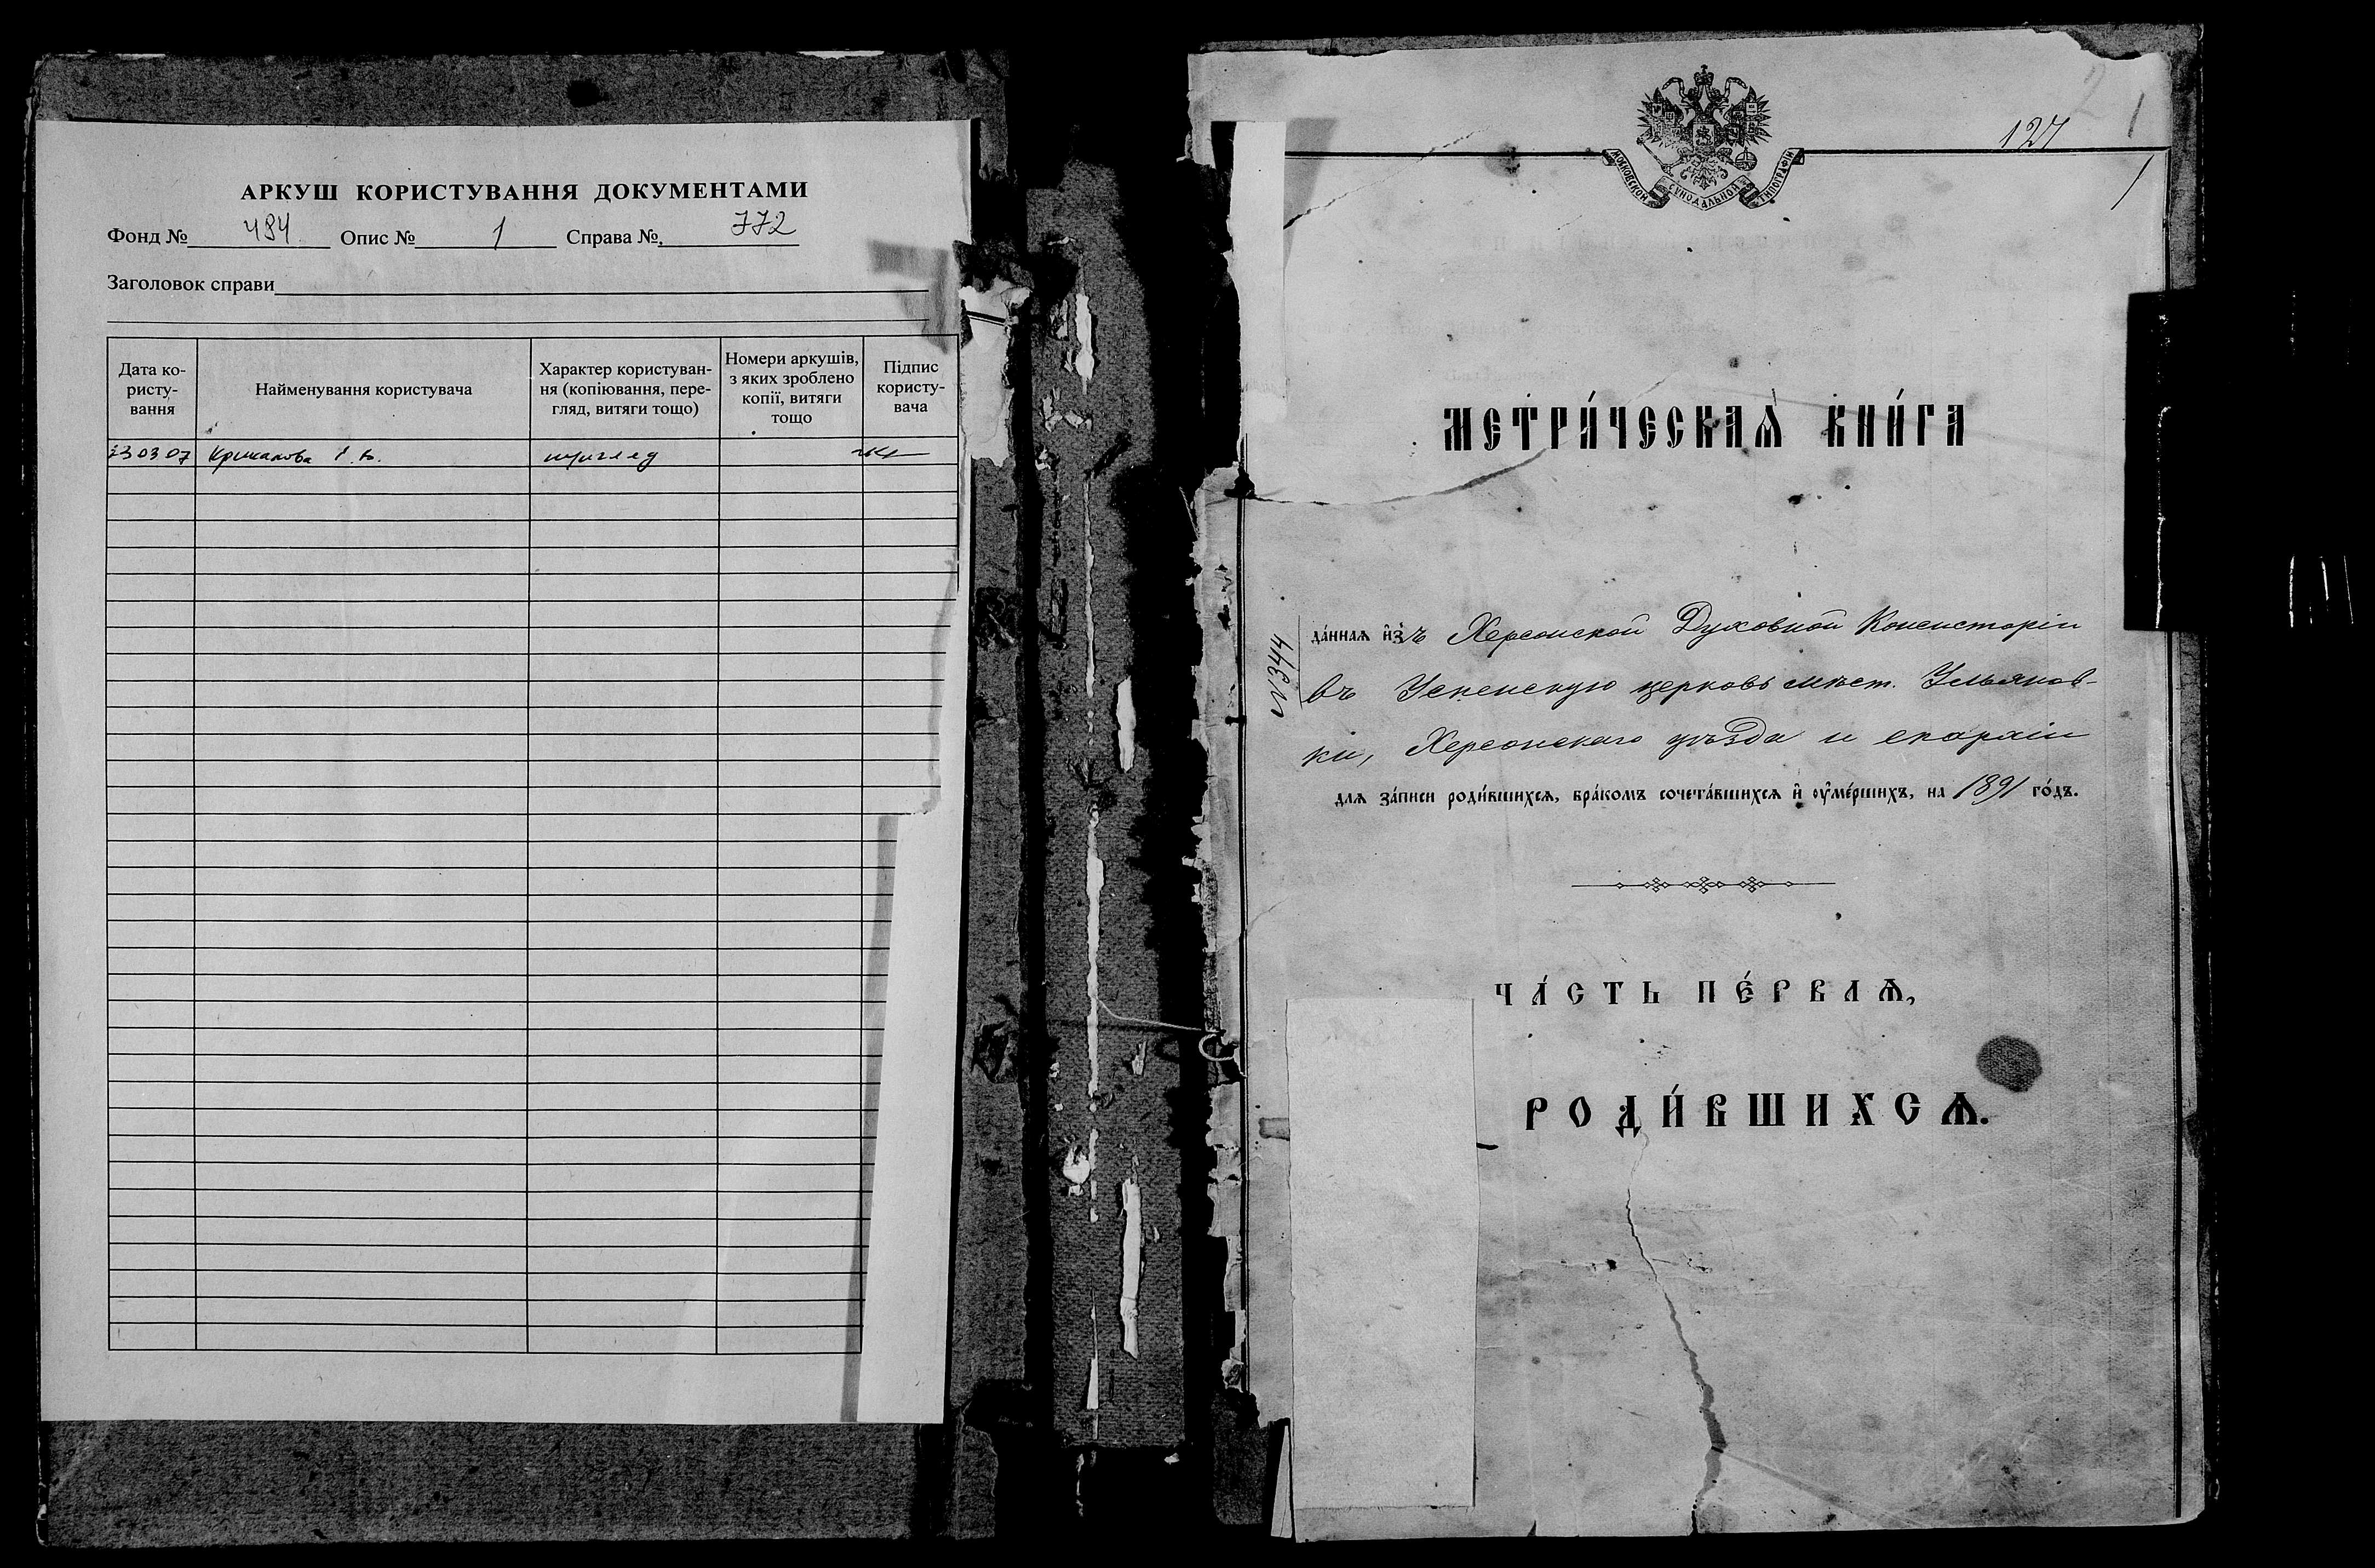 АРКУШ КОРИСТУВАННЯ ДОКУМЕНТАМИ
Фонд № 484 Опис № 1 Справа № 772
Заголовок справи
Дата ко-
ристу-
вання
Найменування користувача
Характер користуван-
ня (копіювання, пере-
гляд, витяги тощо)
Номери аркушів,
з яких зроблено
копії, витяги
тощо
Підпис
користу-
вача
03 07 перегляд
2 1
127
1
МОСКОВСКОЙ СѴНОДАЛЬНОЙ ТИПОГРАФІИ
МЕТРИ́ЧЕСКАѦ КНИ́ГА
№344
да́нная и҆зъ Херсонской Духовной Консисторіи
въ Успенскую церковь мѣст. Ульянов-
ки, Херсонскаго уѣзда и епархіи
для за́писи роди́вшихся, бра́комъ сочета́вшихся и҆ оу҆ме́ршихъ, на 1891 го́дъ.
ЧА́СТЬ ПЕ́РВАѦ,
РОДИ́ВШИХСѦ.